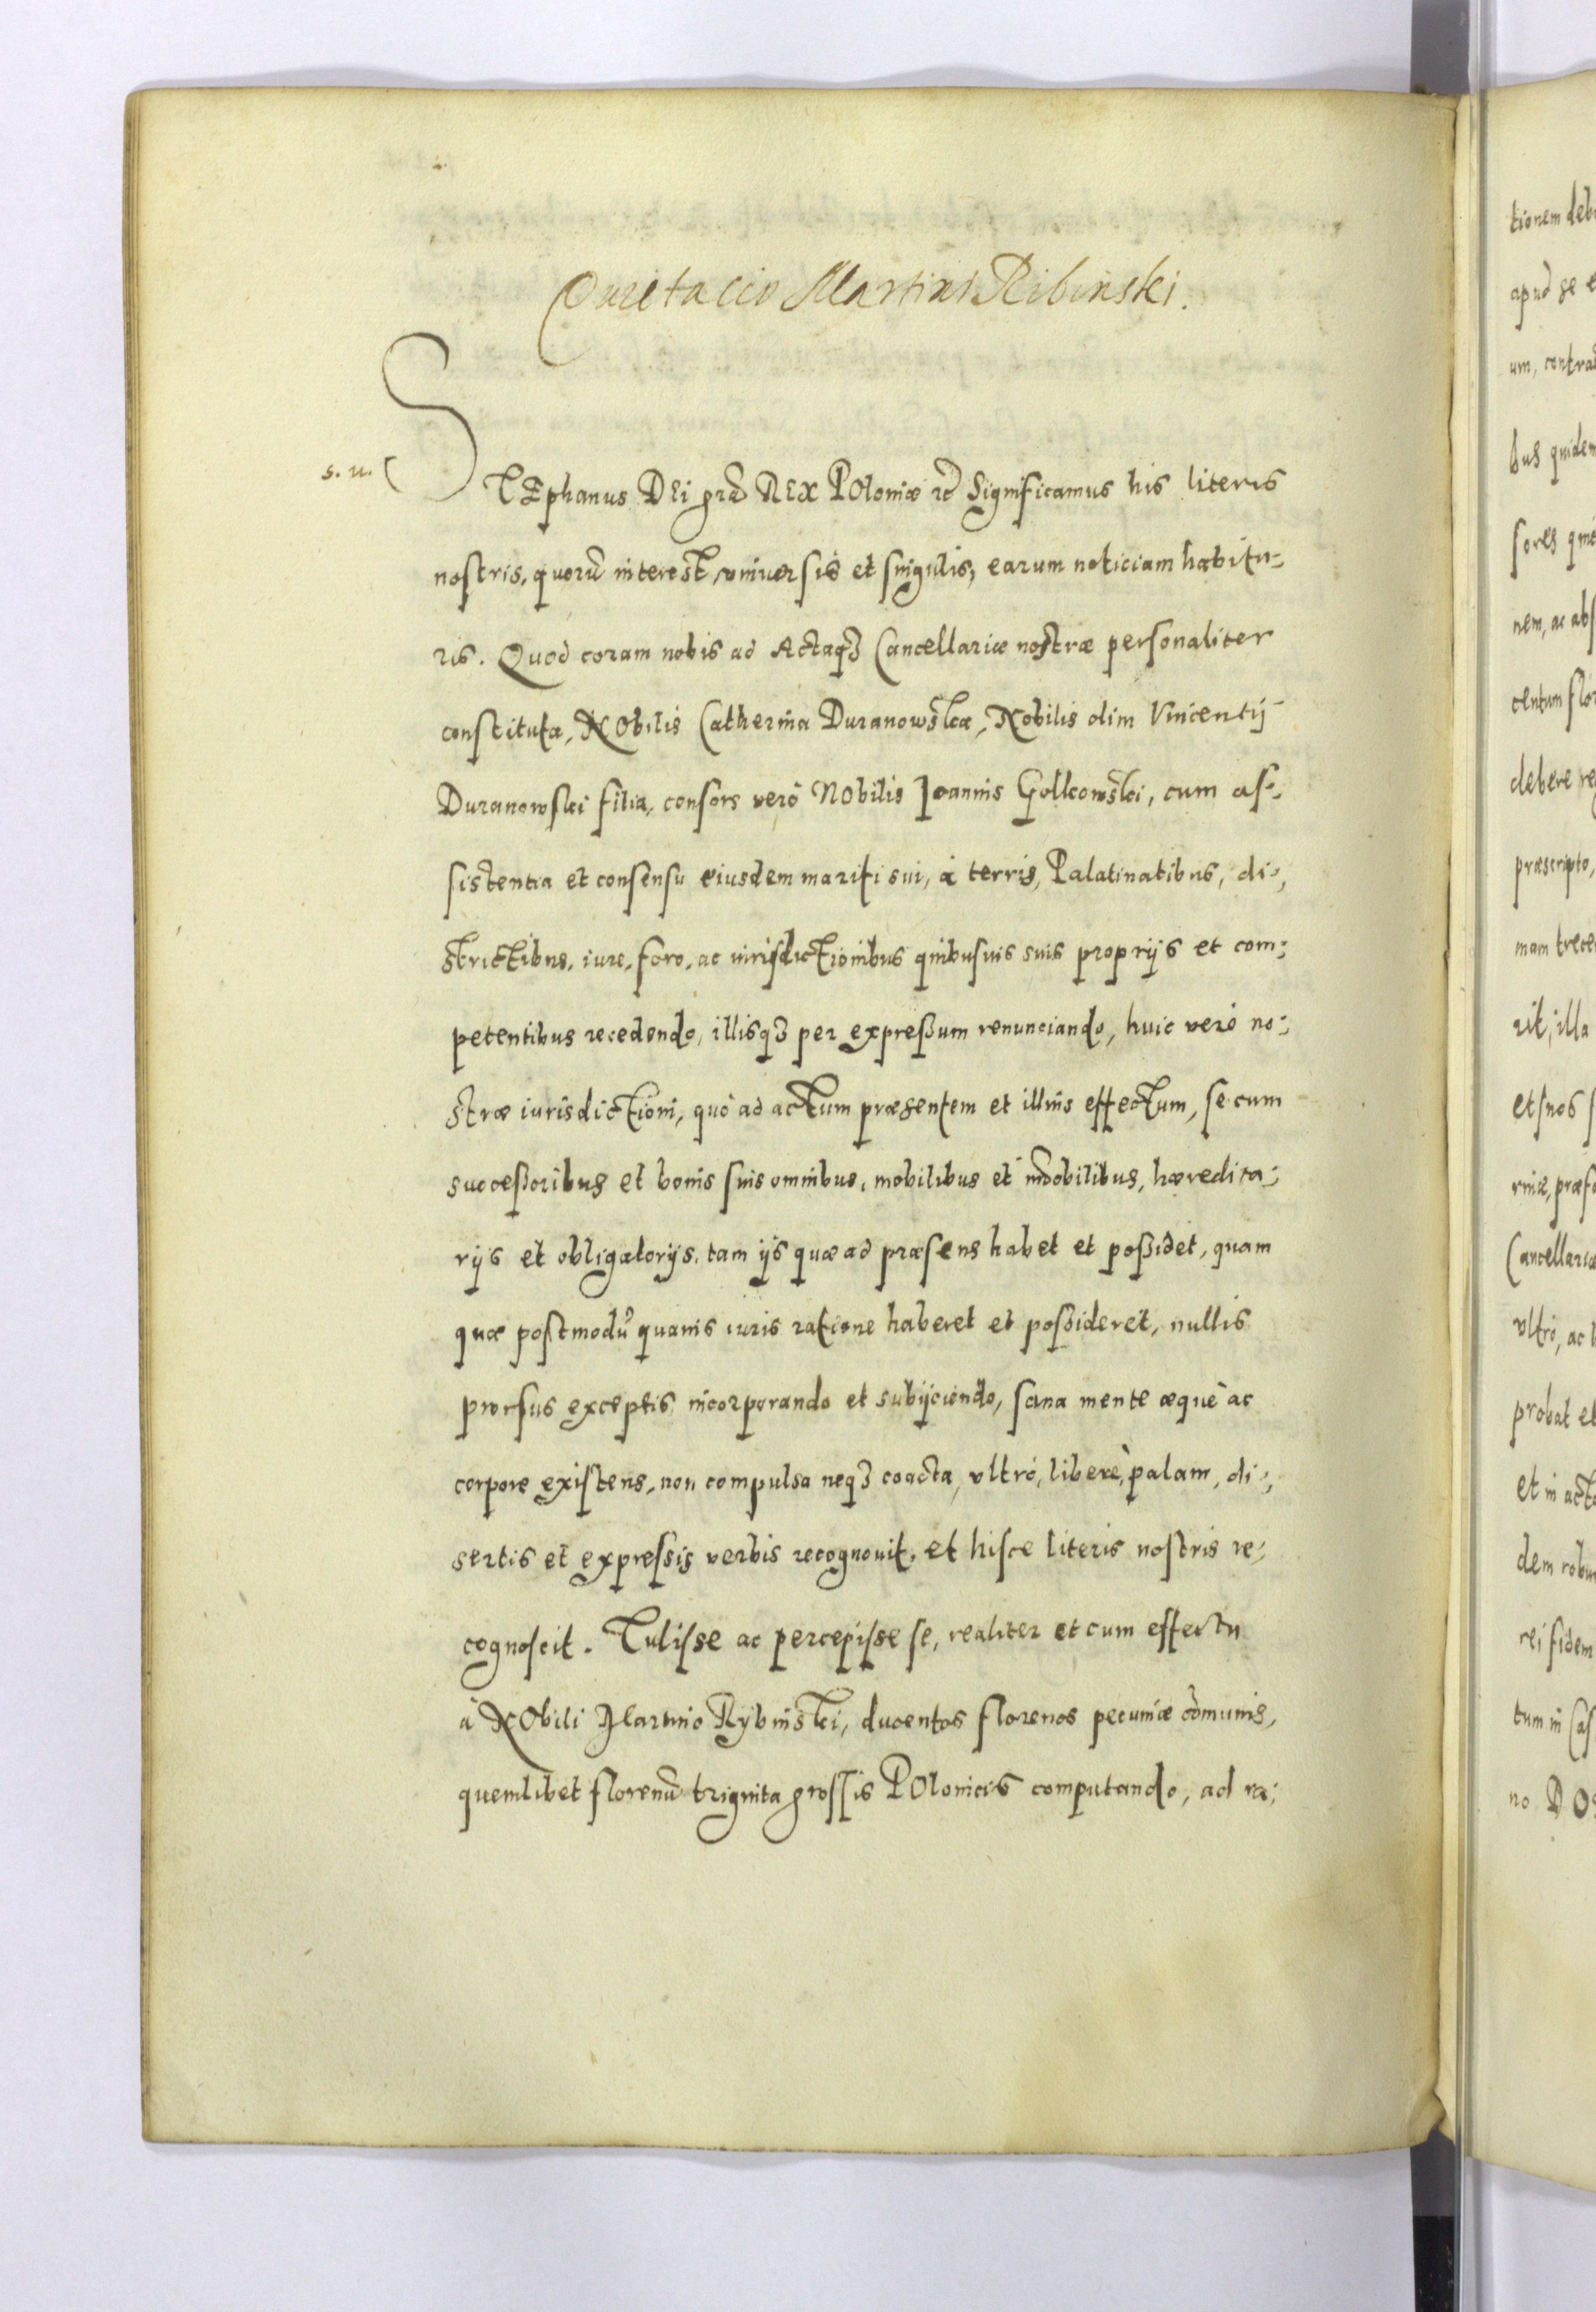 Quietacio Martini Ribinski.
s. u.
STEphanus DEi gra͂ REX POloniæ etc͂ Significamus his literis
nostris, quoru͂ interest, vniuersis et singulis, earum noticiam habitu-
ris. Quod coram nobis ad Actaqꝫ Cancellariæ nostræ personaliter
constituta, NObilis Catherina Duranowska, Nobilis olim Vincentij
Duranowski filia, consors verò NObilis Joannis Golkowski, cum as-
sistentia et consensu eiusdem mariti sui, à terris, Palatinatibus, di-
strictibus, iure, foro, ac iurisdictionibus quibusuis suis proprijs et com-
petentibus recedendo, illisqꝫ per expreßum renunciando, huic verò no-
stræ iurisdictioni, quò ad actum præsentem et illius effectum, se cum
succeßoribus et bonis suis omnibus, mobilibus et im̃obilibus, hæredita-
rijs et obligatorijs, tam ijs quæ ad præsens habet et poßidet, quam
quæ postmodu͂ quauis iuris ratione haberet et poßideret, nullis
prorsus exceptis incorporando et subijciendo, sana mente æquè ac
corpore existens, non compulsa neqꝫ coacta, vltrò, liberè, palam, di-
sertis et expressis verbis recognouit, et hisce literis nostris re-
cognoscit. Tulisse ac percepisse se, realiter et cum effectu
à NObili Martino Rybinski, ducentos florenos pecuniæ co͂munis,
quemlibet florenu͂ triginta grossis POlonicis computando, ad ra-
tionem deb
apud se e
um, contrad
bus quidem
sores qui
nem, ac abs
centum flor
debere re
præscripto,
mam trece
rit, illa
et nos s
rinæ, præfa
Cancellariæ
vltrò, ac l
probat et
et in acta
dem robur
rei fidem
tum in Cas
no DOs